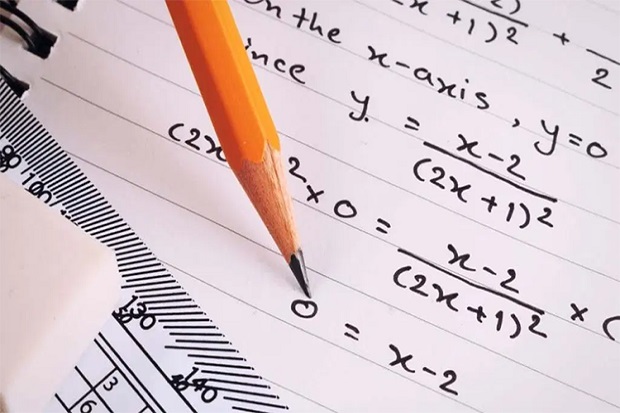 x+1)² + 2
n the x-axis, y=0
ince y = x-2/(2x+1)²
(2x ² × 0 = x-2/(2x+1)² × (
0 = x-2
80
100
130
140
3
6